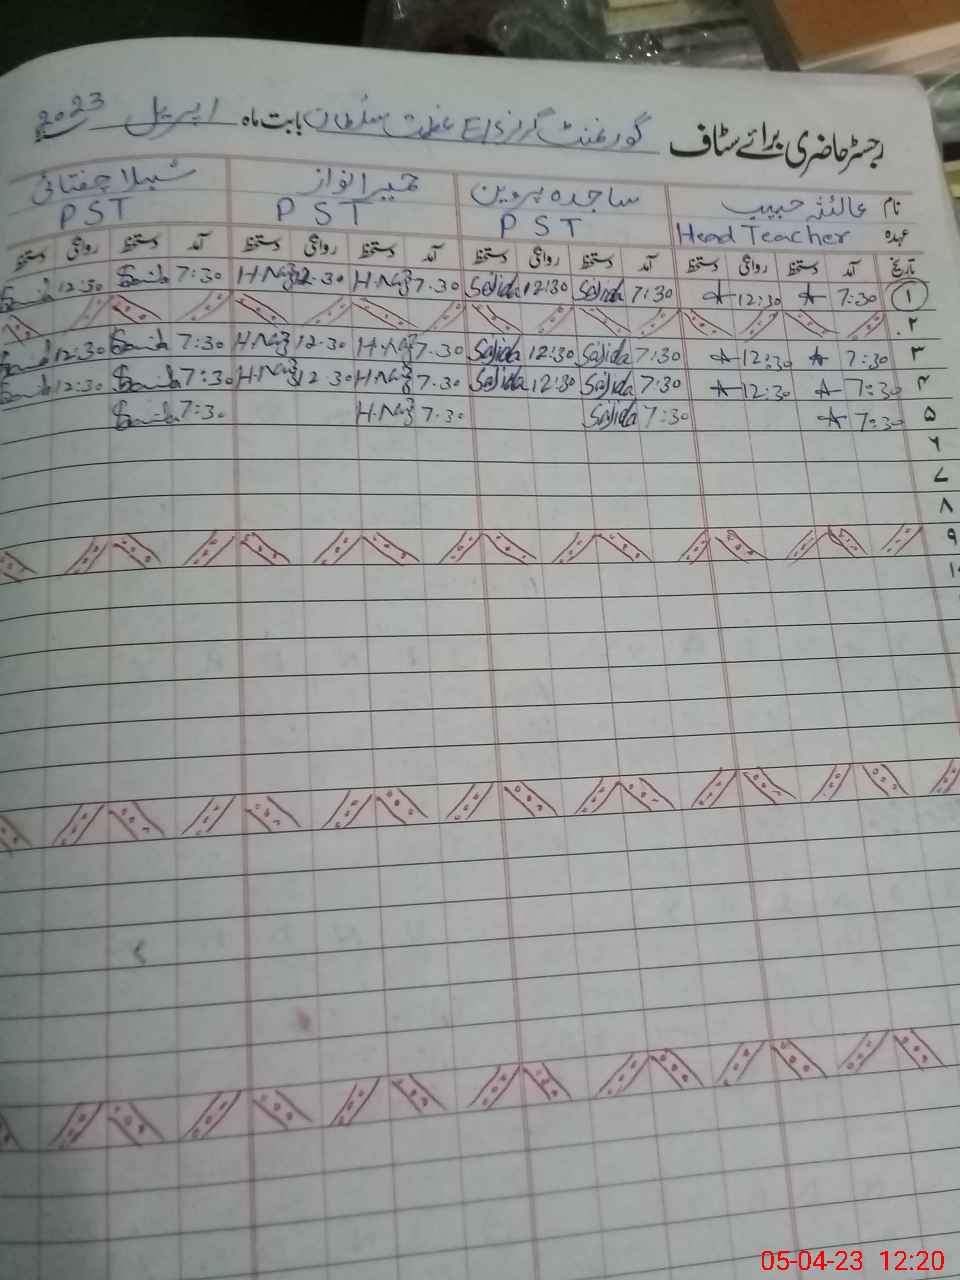 رجسٹر حاضری برائے سٹاف گورنمنٹ گرلز E/S عظمت سلطان بابت ماہ اپریل 2023
نام عائشہ حبیب ساجدہ پروین حمیرا نواز شہلا چغتائی
عہدہ Head Teacher PST PST PST
تاریخ آمد دستخط روانگی دستخط آمد دستخط روانگی دستخط آمد دستخط روانگی دستخط آمد دستخط روانگی دستخط
۱ 7:30 12:30 7:30 Sajida 12:30 Sajida 7.30 H.Naz 12.30 H.Naz 7:30 12:30
۲
۳ 7:30 12:30 7:30 Sajida 12:30 Sajida 7.30 H.Naz 12.30 H.Naz 7:30 12:30
۴ 7:30 12:30 7:30 Sajida 12:30 Sajida 7.30 H.Naz 12.30 H.Naz 7:30 12:30
۵ 7:30 7:30 Sajida 7.30 H.Naz 7:30
۶
۷
۸
۹
۱۰
05-04-23 12:20